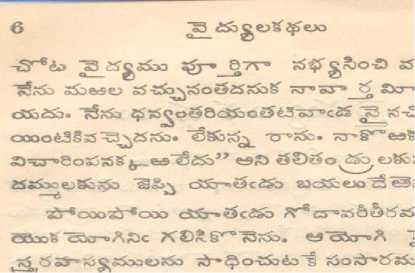 6 వైద్యులకథలు
చోట వైద్యము పూర్తిగా నభ్యసించి వ
నేను మఱల వచ్చునంతదనుక నావార్త మీ
యదు. నేను ధన్వంతరియంతటివాఁడ నై నచ
యింటికివచ్చెదను. లేకున్న రాను. నాకొఱకు
విచారింపనక్కఱలేదు” అని తలితండ్రులకు
దమ్ములకును జెప్పి యాతఁడు బయలుదే
పోయిపోయి యాతఁడు గోదావరీతీరమ
యొకయోగినిఁ గలిసికొనెను. ఆయోగి
రహస్యములను సాధించుటకే సంసారమ